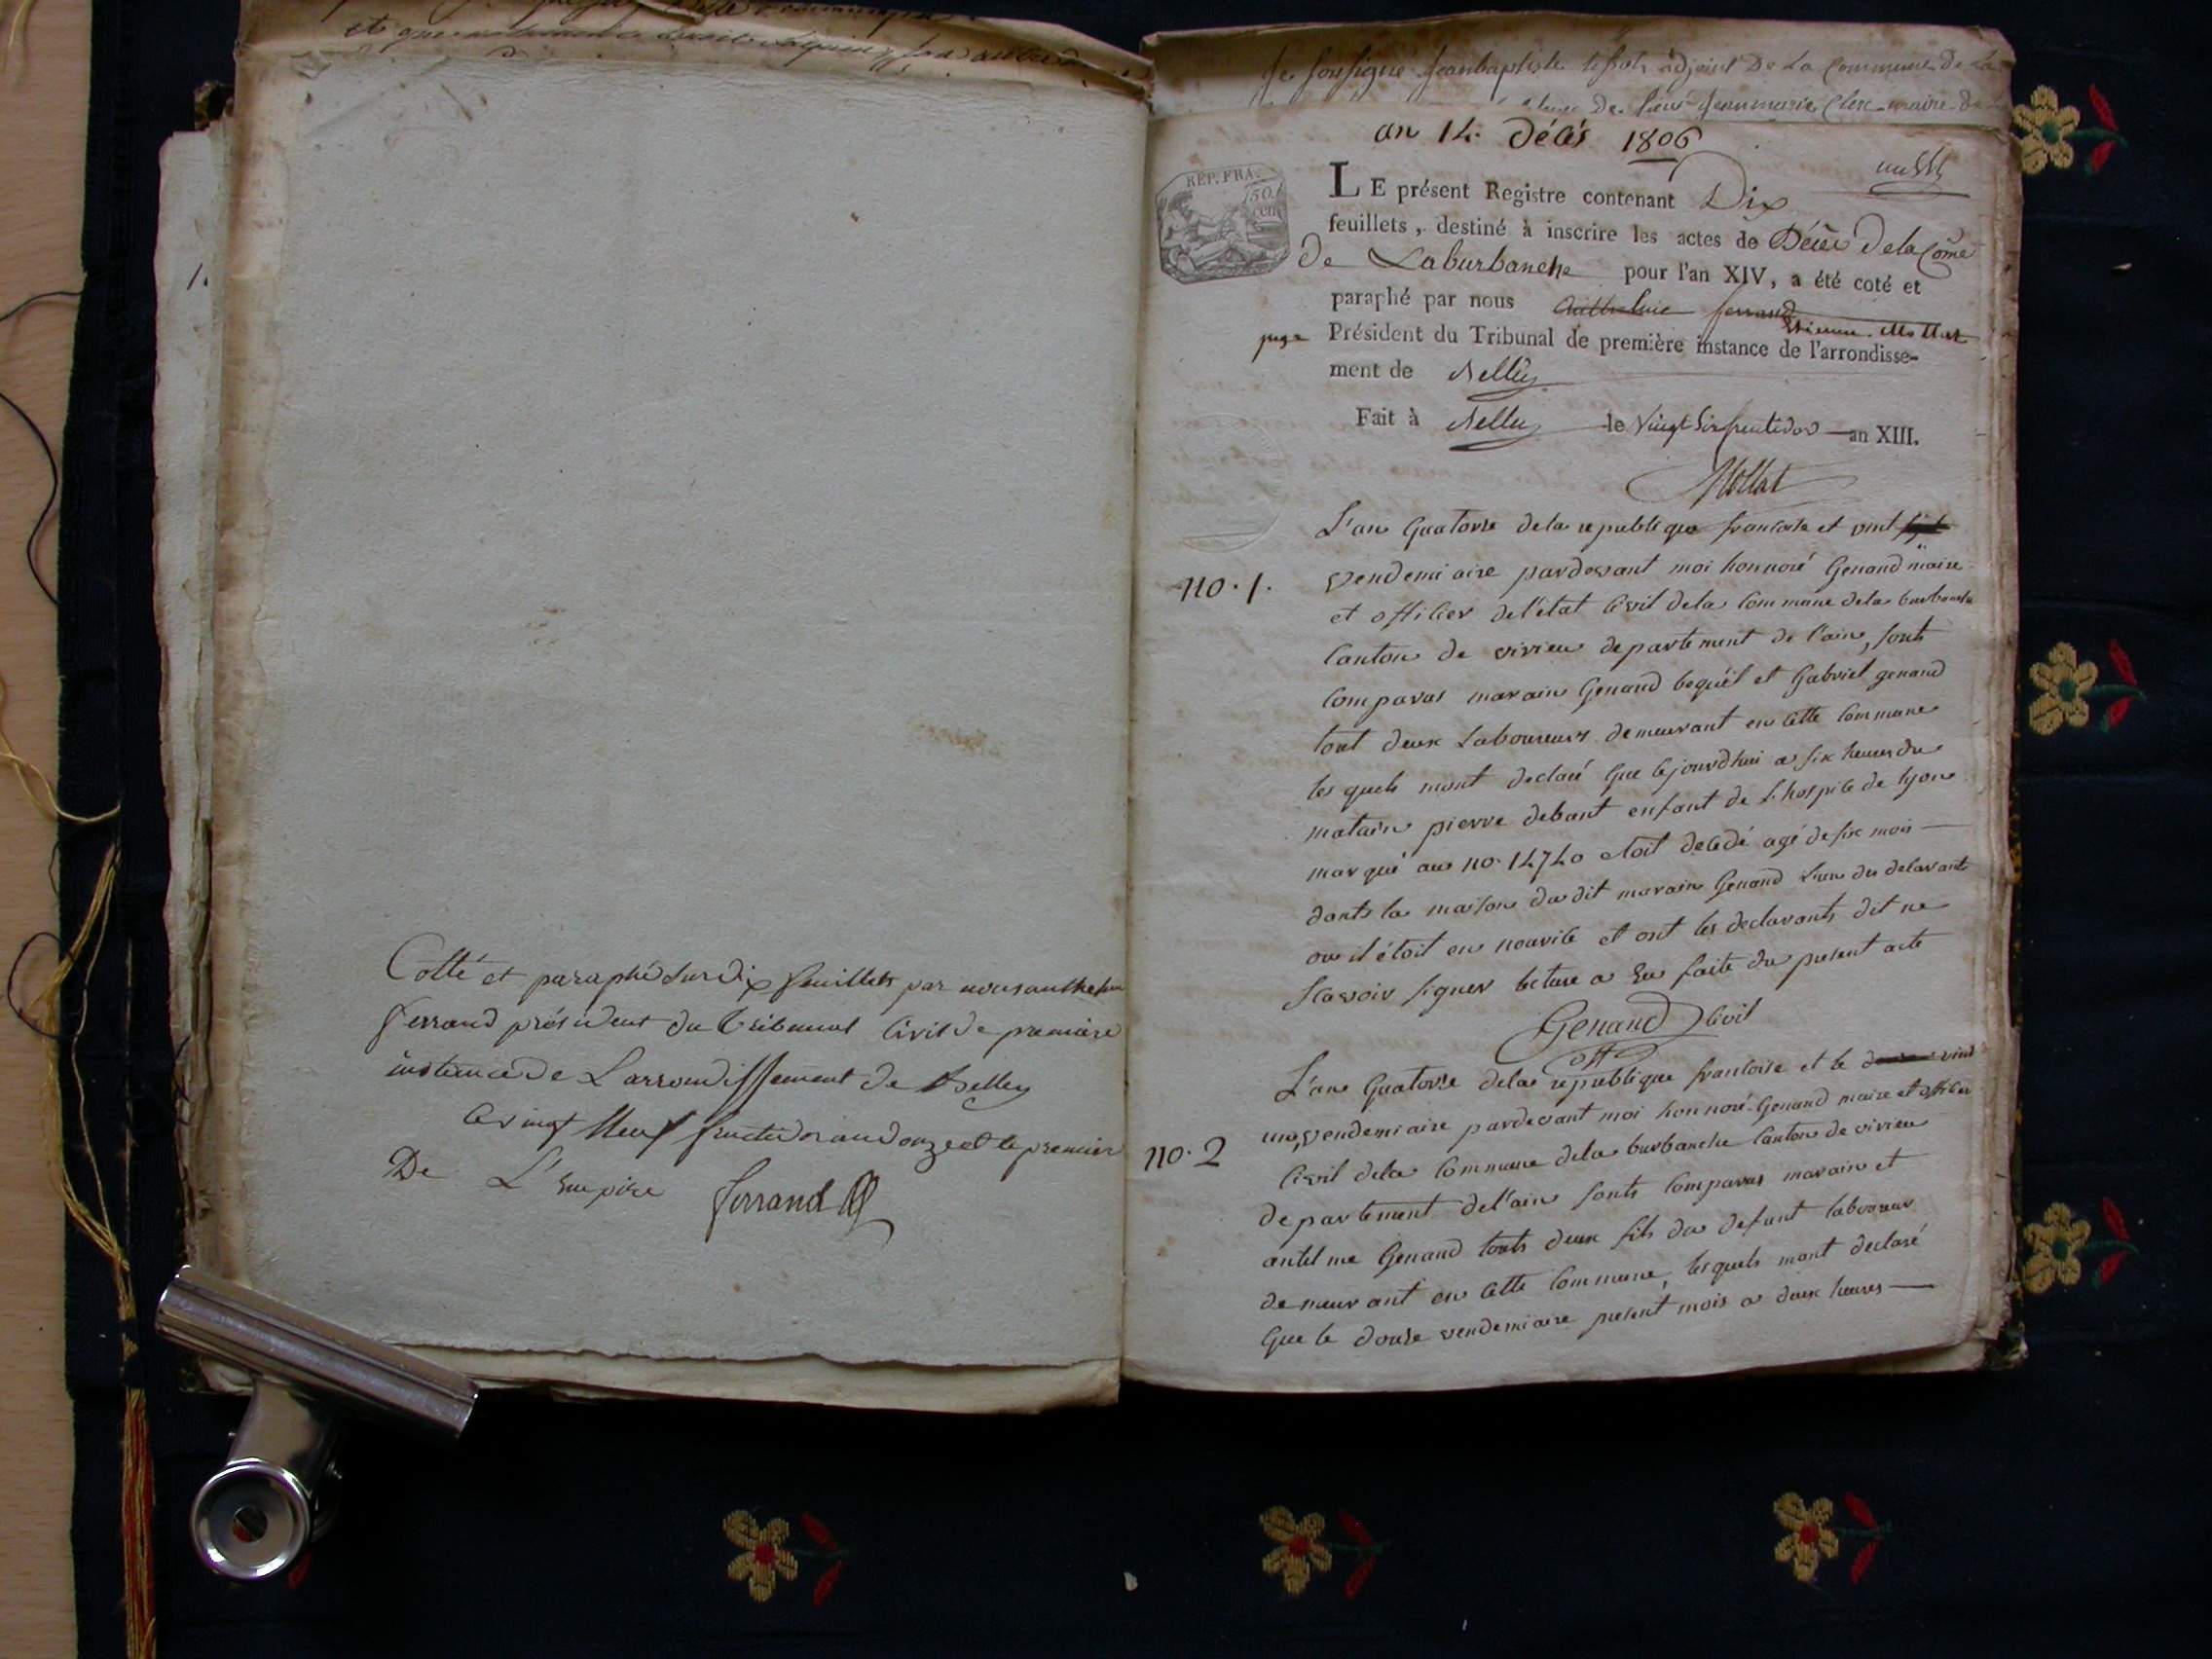 et que
Cotté et paraphé sur Dix feuillets par nous anthelme
ferrand président du tribunal Civil de premiere
instance de Larrondissement de Belley
le vingt Neuf fructidor an douze et le premier
De L'Empire ferrand
1.
je soussigné jeanbaptiste adjoint De La Commune de La
De sieur jeanmarie Clerc maire de
an 14. Décés 1806
REP. FRA.
50.
cen.
LE présent Registre contenant Dix
feuillets, destiné à inscrire les actes de Décès De la Cõme
De Laburbanche pour l'an XIV, a été coté et
paraphé par nous Anthelme ferrand Etienne Mollet
juge Président du Tribunal de première instance de l'arrondisse-
ment de Belley
Fait à Belley le Vingt Six fructidor an XIII.
Mollet
L'an quatorse dela republique francoise et vint
no. 1. vendemiaire pardevant moi honnoré Genand maire
et officier de l'etat Civil dela Commune dela burbanche
Canton de virieu departement de l'ain, sonts
Comparus marain Genand bequet et Gabriel genand
tout deux Laboureurs demeurant en Cette Commune
les quels mont declaré que cejourdhui a six heures du
matain pierre debant enfant de L'hospice de lyon
marqué au no. 14740 etoit decedé agé de six mois
dants la maison du dit marain Genand L'un des delarants
ou il étoit en nourice et ont les declarants dit ne
scavoir signer lecture a Eu faite du present acte
Genand off Civil
L'an quatorse dela republique francoise et le vint
no. 2 un vendemiaire pardevant moi honnoré Genand maire et officier
Civil dela Commune dela burbanche Canton de virieu
departement del'ain sonts Comparus marain et
antelme Genand touts deux fils du defunt laboureur
demeurant en Cette Commune, lesquels mont declaré
que le douse vendemiaire present mois a deux heures